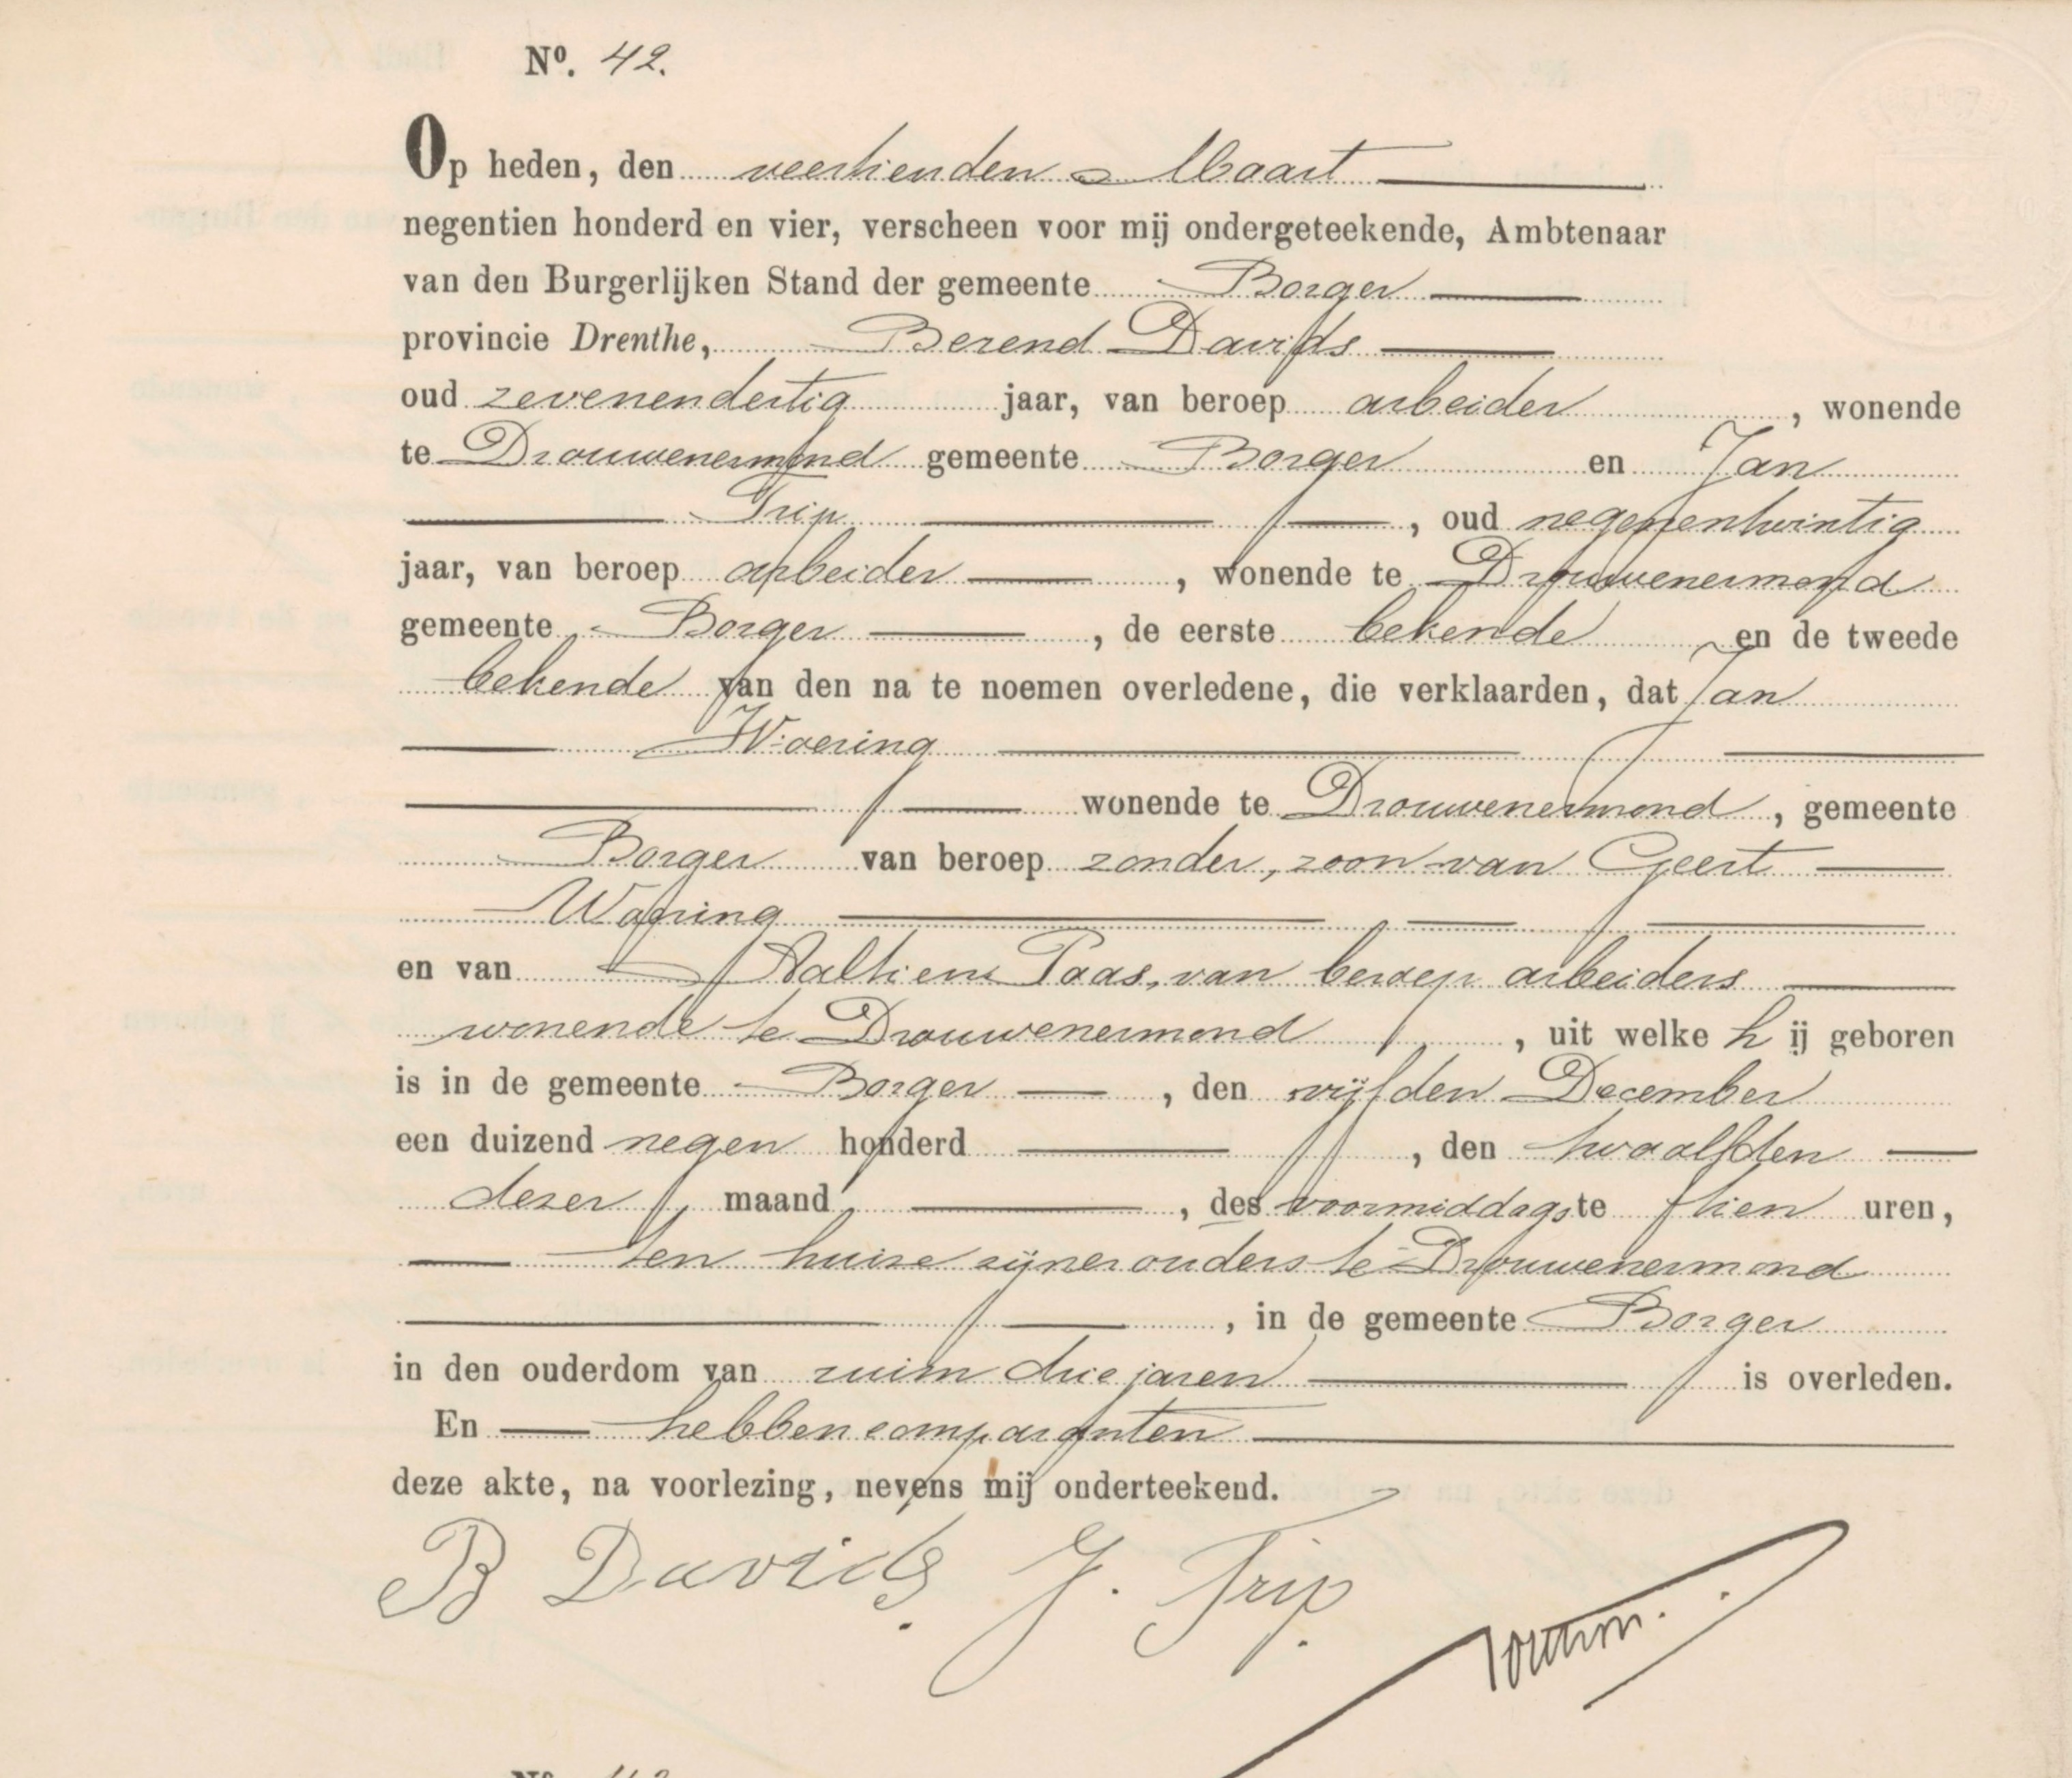 Nº. 42.
Op heden, den veertienden Maart
negentien honderd en vier, verscheen voor mij ondergeteekende, Ambtenaar
van den Burgerlijken Stand der gemeente Borger
provincie Drenthe, Berend Davids
oud zevenendertig jaar, van beroep arbeider , wonende
te Drouwenermond gemeente Borger en Jan
Trip , oud negenentwintig
jaar, van beroep arbeider , wonende te Drouwenermond
gemeente Borger , de eerste bekende en de tweede
bekende van den na te noemen overledene, die verklaarden, dat Jan
Woering
wonende te Drouwenermond , gemeente
Borger van beroep zonder, zoon van Geert
Woring
en van Aaltien Paas, van beroep arbeiders
wonende te Drouwenermond , uit welke h ij geboren
is in de gemeente Borger , den vijfden December
een duizend negen honderd , den twaalfden
dezer maand , des voormiddags te tien uren,
ten huize zijner ouders te Drouwenermond
, in de gemeente Borger
in den ouderdom van ruim drie jaren is overleden.
En hebben comparanten
deze akte, na voorlezing, nevens mij onderteekend.
B Davids. J. Trip.